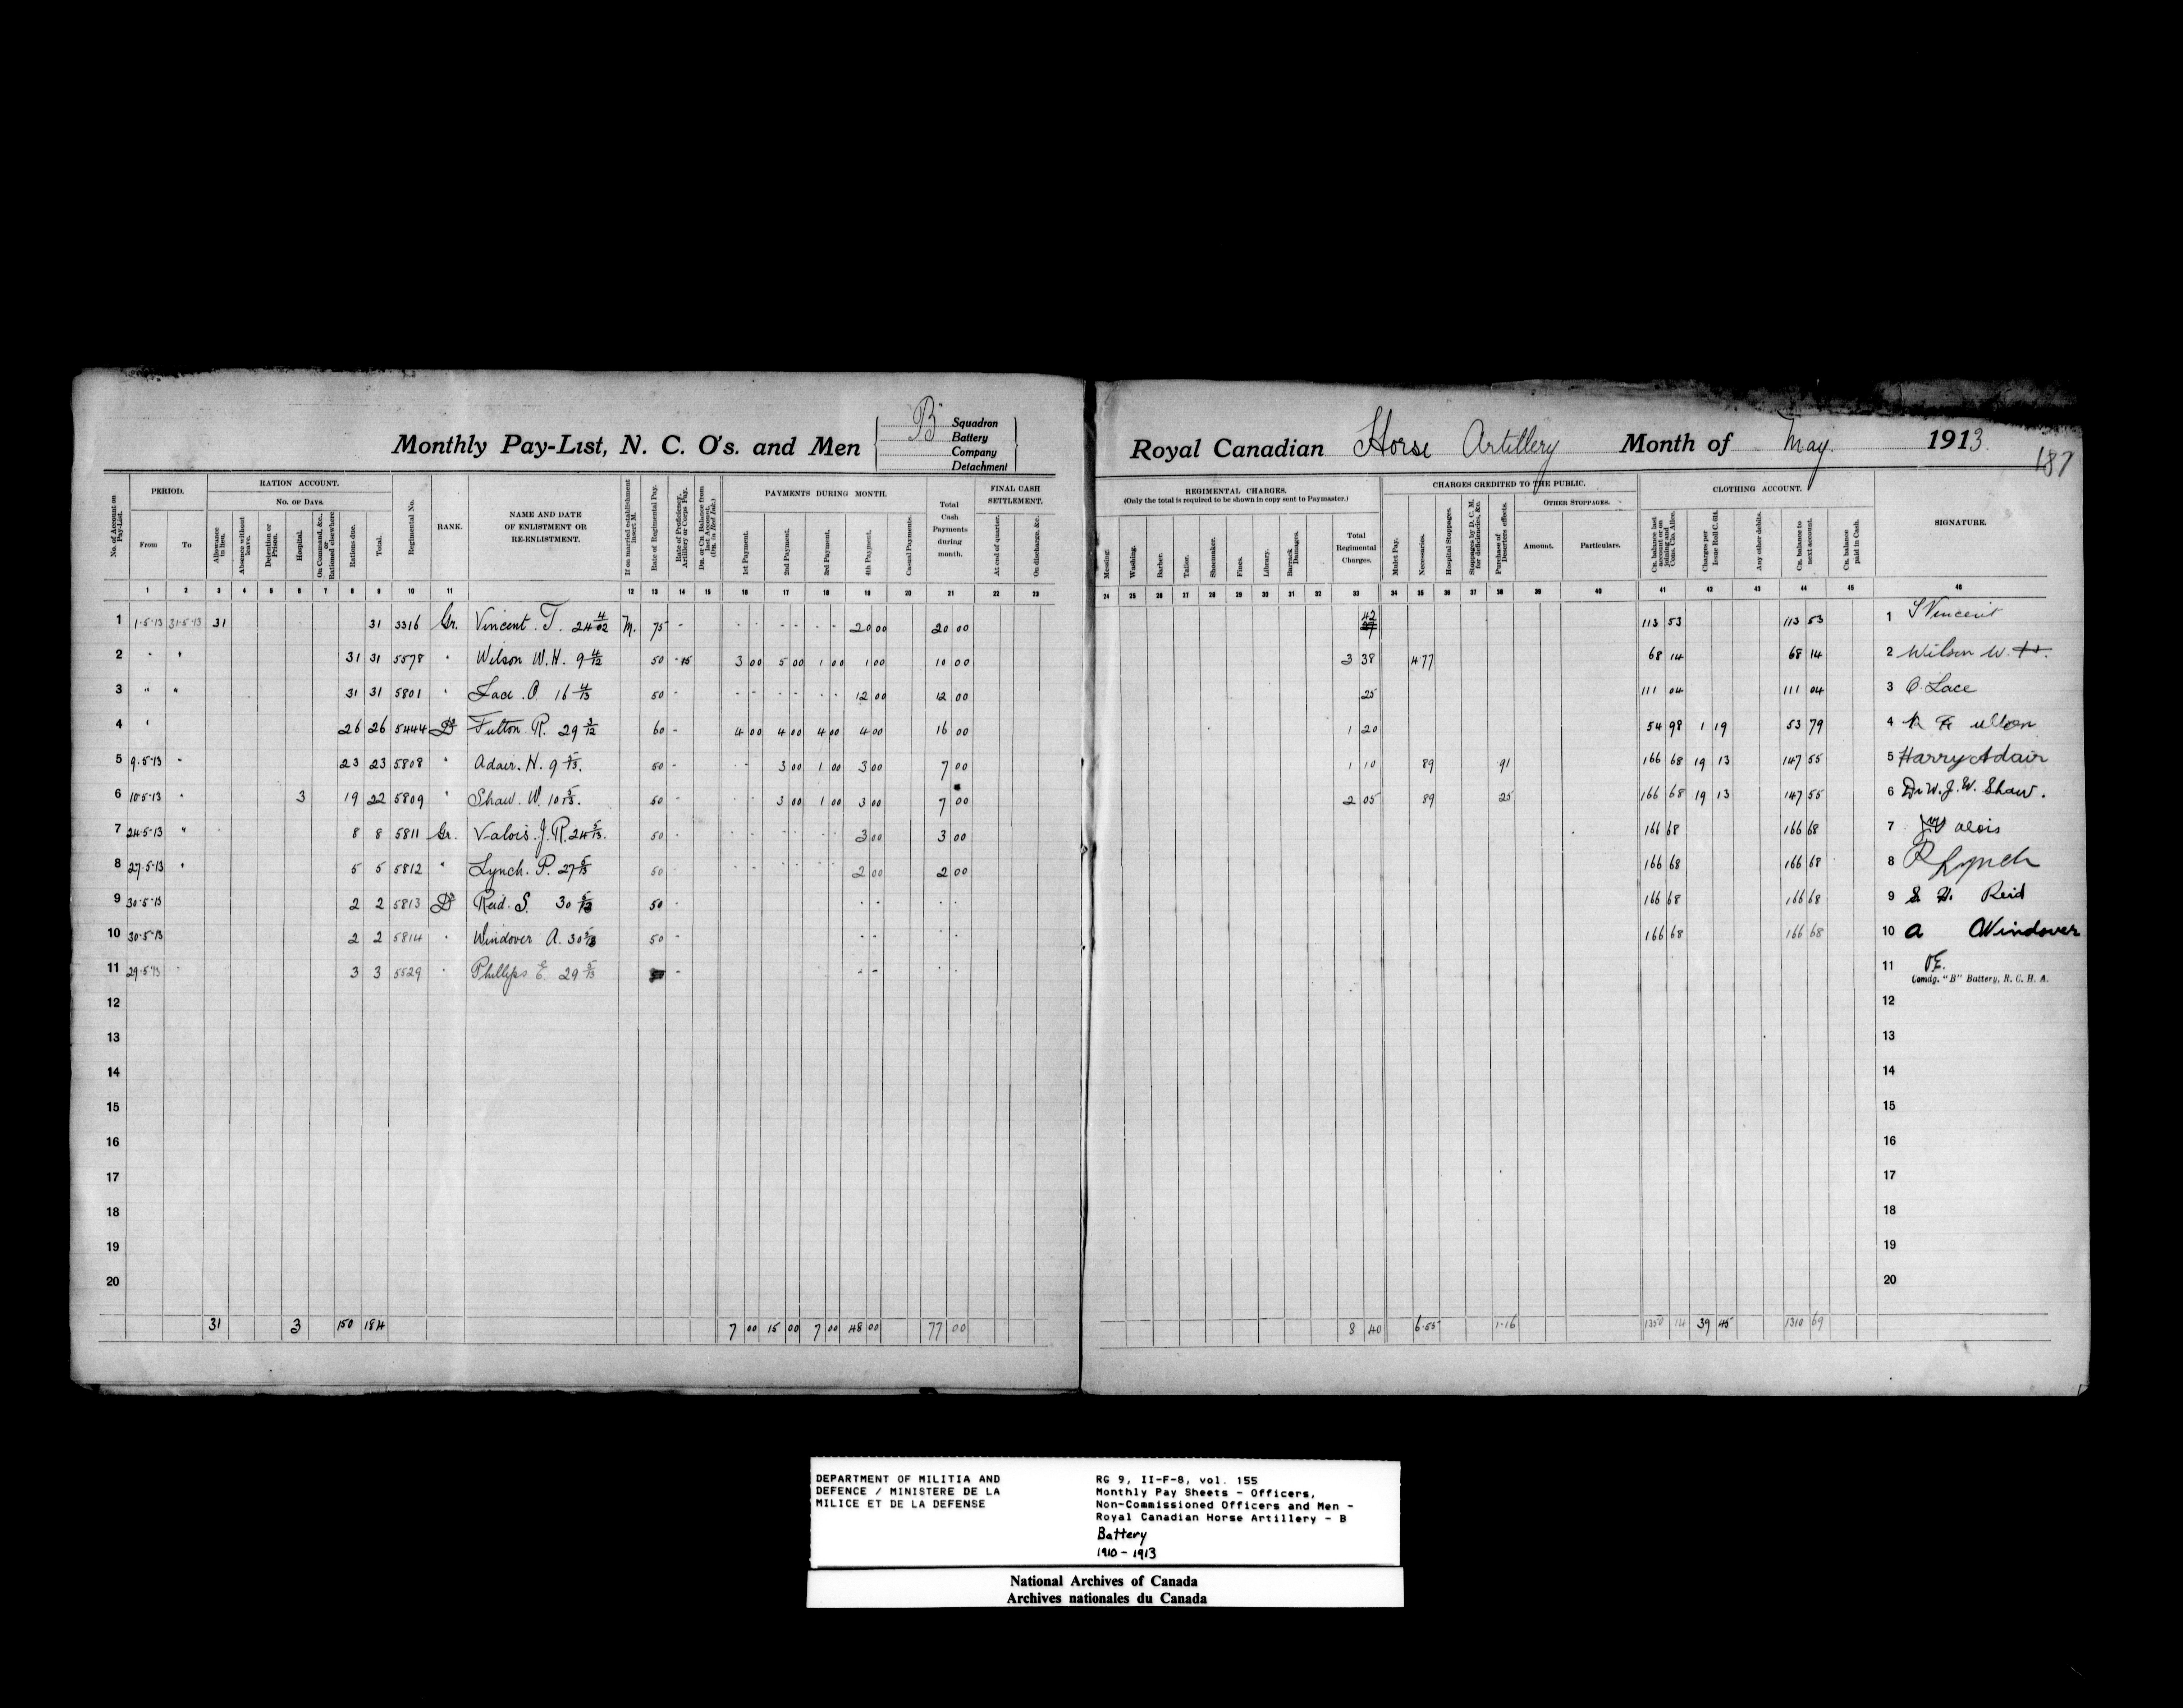 B Squadron
Monthly Pay-List, N. C. O's. and Men Battery
Company
Detachment
Royal Canadian Horse Artillery Month of May 1913
187
No. of Account on Pay-List.
PERIOD.
From To
RATION ACCOUNT.
No. of Days.
Allowance in lieu.
Absence without leave.
Detention or Prison.
Hospital.
On Command, &c., or Rationed elsewhere
Rations due.
Total.
Regimental No.
RANK.
NAME AND DATE
OF ENLISTMENT OR
RE-ENLISTMENT.
If on married establishment insert M.
Rate of Regimental Pay.
Rate of Proficiency, Artillery or Corps Pay.
Dr. or Cr. Balance from last Account. (Cr. in Red Ink.)
PAYMENTS DURING MONTH.
1st Payment.
2nd Payment.
3rd Payment.
4th Payment.
Casual Payments.
Total Cash Payments during month.
FINAL CASH SETTLEMENT.
At end of quarter.
On discharge, &c.
REGIMENTAL CHARGES.
(Only the total is required to be shown in copy sent to Paymaster.)
Messing.
Washing.
Barber.
Tailor.
Shoemaker.
Fines.
Library.
Barrack Damages.
Total Regimental Charges.
CHARGES CREDITED TO THE PUBLIC.
Mulct Pay.
Necessaries.
Hospital Stoppages.
Stoppages by D. C. M. for deficiencies, &c.
Purchase of Deserters effects.
OTHER STOPPAGES.
Amount. Particulars.
CLOTHING ACCOUNT.
Cr. balance last account or on joining and Cons. Clo. Allce.
Charges per Issue Roll C. 614.
Any other debits.
Cr. balance to next account.
Cr. balance paid in Cash.
SIGNATURE.
1 2 3 4 5 6 7 8 9 10 11 12 13 14 15 16 17 18 19 20 21 22 23 24 25 26 27 28 29 30 31 32 33 34 35 36 37 38 39 40 41 42 43 44 45 46
1 1-5-13 31-5-13 31 31 3316 Gr. Vincent. T. 24 4/02 M. 75 - 20 00 20 00 42 113 53 113 53 1 T Vincent
2 " " 31 31 5578 " Wilson W.H. 9 4/12 50 - 15 3 00 5 00 1 00 1 00 10 00 3 38 4 77 68 14 68 14 2 Wilson W. H.
3 " " 31 31 5801 " Lace. O 16 4/13 50 - 12 00 12 00 25 111 04 111 04 3 O. Lace
4 " 26 26 5444 Fulton. R. 29 3/12 60 - 4 00 4 00 4 00 4 00 16 00 1 20 54 98 1 19 53 79 4 R Fulton
5 9-5-13 " 23 23 5808 " Adair. H. 9 5/13. 50 - 3 00 1 00 3 00 7 00 1 10 89 91 166 68 19 13 147 55 5 Harry Adair
6 10-5-13 " 3 19 22 5809 " Shaw. W. 10 5/13. 50 - 3 00 1 00 3 00 7 00 2 05 89 25 166 68 19 13 147 55 6 Dr W. J. W. Shaw.
7 24-5-13 " 8 8 5811 Gr. Valois. J. R. 24 5/13. 50 - 3 00 3 00 166 68 166 68 7 Valois
8 27-5-13 " 5 5 5812 " Lynch. P. 27 5/13 50 - 2 00 2 00 166 68 166 68 8 P Lynch
9 30-5-13 2 2 5813 Reid. S. 30 5/13 50 - 166 68 166 68 9 S. H. Reid
10 30-5-13 2 2 5814 " Windover A. 30 5/13 50 - 166 68 166 68 10 A Windover
11 29-5-13 3 3 5529 " Phillips E 29 5/13 - 11
Comdg. "B" Battery, R. C. H. A.
12 12
13 13
14 14
15 15
16 16
17 17
18 18
19 19
20 20
31 3 150 184 7 00 15 00 7 00 48 00 77 00 8 40 6.55 1.16 1350 14 39 45 1310 69
DEPARTMENT OF MILITIA AND
DEFENCE / MINISTERE DE LA
MILICE ET DE LA DEFENSE
RG 9, II-F-8, vol. 155
Monthly Pay Sheets - Officers,
Non-Commissioned Officers and Men -
Royal Canadian Horse Artillery - B
Battery
1910 - 1913
National Archives of Canada
Archives nationales du Canada